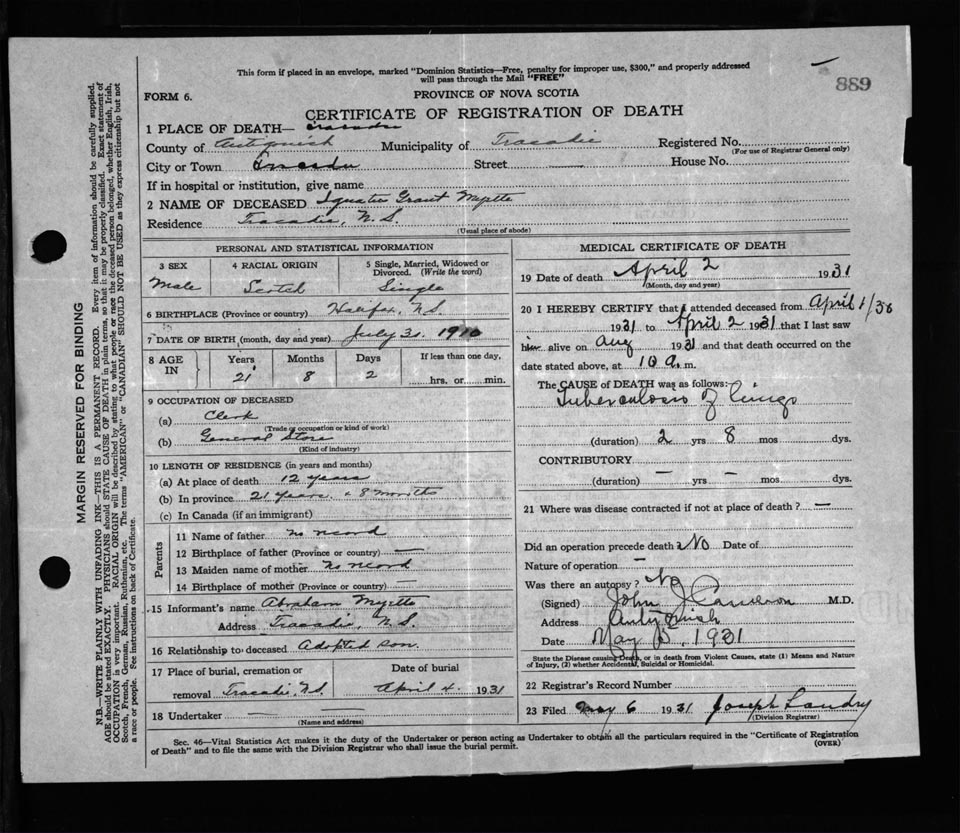 This form if placed in an envelope, marked "Dominion Statistics—Free, penalty for improper use, $300," and properly addressed
will pass through the Mail "FREE"
889
FORM 6.
PROVINCE OF NOVA SCOTIA
CERTIFICATE OF REGISTRATION OF DEATH
1 PLACE OF DEATH— Tracadie
County of Antigonish Municipality of Tracadie Registered No.
(For use of Registrar General only)
City or Town Tracadie Street House No.
If in hospital or institution, give name
2 NAME OF DECEASED Ignatius Grant Myette
Residence Tracadie, N.S.
(Usual place of abode)
PERSONAL AND STATISTICAL INFORMATION
3 SEX 4 RACIAL ORIGIN 5 Single, Married, Widowed or
Divorced. (Write the word)
Male Scotch Single
6 BIRTHPLACE (Province or country) Halifax, N.S.
7 DATE OF BIRTH (month, day and year) July 31. 1910
8 AGE IN Years Months Days If less than one day,
21 8 2 hrs. or min.
9 OCCUPATION OF DECEASED
(a) Clerk
(Trade or occupation or kind of work)
(b) General Store
(Kind of industry)
10 LENGTH OF RESIDENCE (in years and months)
(a) At place of death 12 years
(b) In province 21 years. & 8 months
(c) In Canada (if an immigrant)
Parents
11 Name of father no record
12 Birthplace of father (Province or country) —
13 Maiden name of mother no record
14 Birthplace of mother (Province or country) —
15 Informant's name Abraham Myette
Address Tracadie, N.S.
16 Relationship to deceased Adopted son.
17 Place of burial, cremation or Date of burial
removal Tracadie, N.S. April 4. 1931
18 Undertaker —
(Name and address)
MEDICAL CERTIFICATE OF DEATH
19 Date of death April 2 1931
(Month, day and year)
20 I HEREBY CERTIFY that I attended deceased from April 1/30
1931 to April 2 1931 that I last saw
him alive on Aug 1931 and that death occurred on the
date stated above, at 10 a. m.
The CAUSE of DEATH was as follows:
Tuberculosis of Lungs
(duration) 2 yrs 8 mos. dys.
CONTRIBUTORY
(duration) — yrs — mos. dys.
21 Where was disease contracted if not at place of death? —
Did an operation precede death? No Date of
Nature of operation —
Was there an autopsy? No
(Signed) John J Cameron M.D.
Address Antigonish
Date May 1931
State the Disease causing Death, or in death from Violent Causes, state (1) Means and Nature
of Injury, (2) whether Accidental, Suicidal or Homicidal.
22 Registrar's Record Number
23 Filed May 6 1931 Joseph Landry
(Division Registrar)
Sec. 46—Vital Statistics Act makes it the duty of the Undertaker or person acting as Undertaker to obtain all the particulars required in the "Certificate of Registration
of Death" and to file the same with the Division Registrar who shall issue the burial permit.
(OVER)
MARGIN RESERVED FOR BINDING
N.B.—WRITE PLAINLY WITH UNFADING INK—THIS IS A PERMANENT RECORD. Every item of information should be carefully supplied.
AGE should be stated EXACTLY. PHYSICIANS should STATE CAUSE OF DEATH in plain terms, so that it may be properly classified. Exact statement of
OCCUPATION is very important. RACIAL ORIGIN will be described by stating to what people or race the deceased person belonged, whether English, Irish,
Scotch, French, German, Russian, Ruthenian, etc. The terms "AMERICAN" or "CANADIAN" SHOULD NOT BE USED as they express citizenship but not
a race or people. See instructions on back of Certificate.